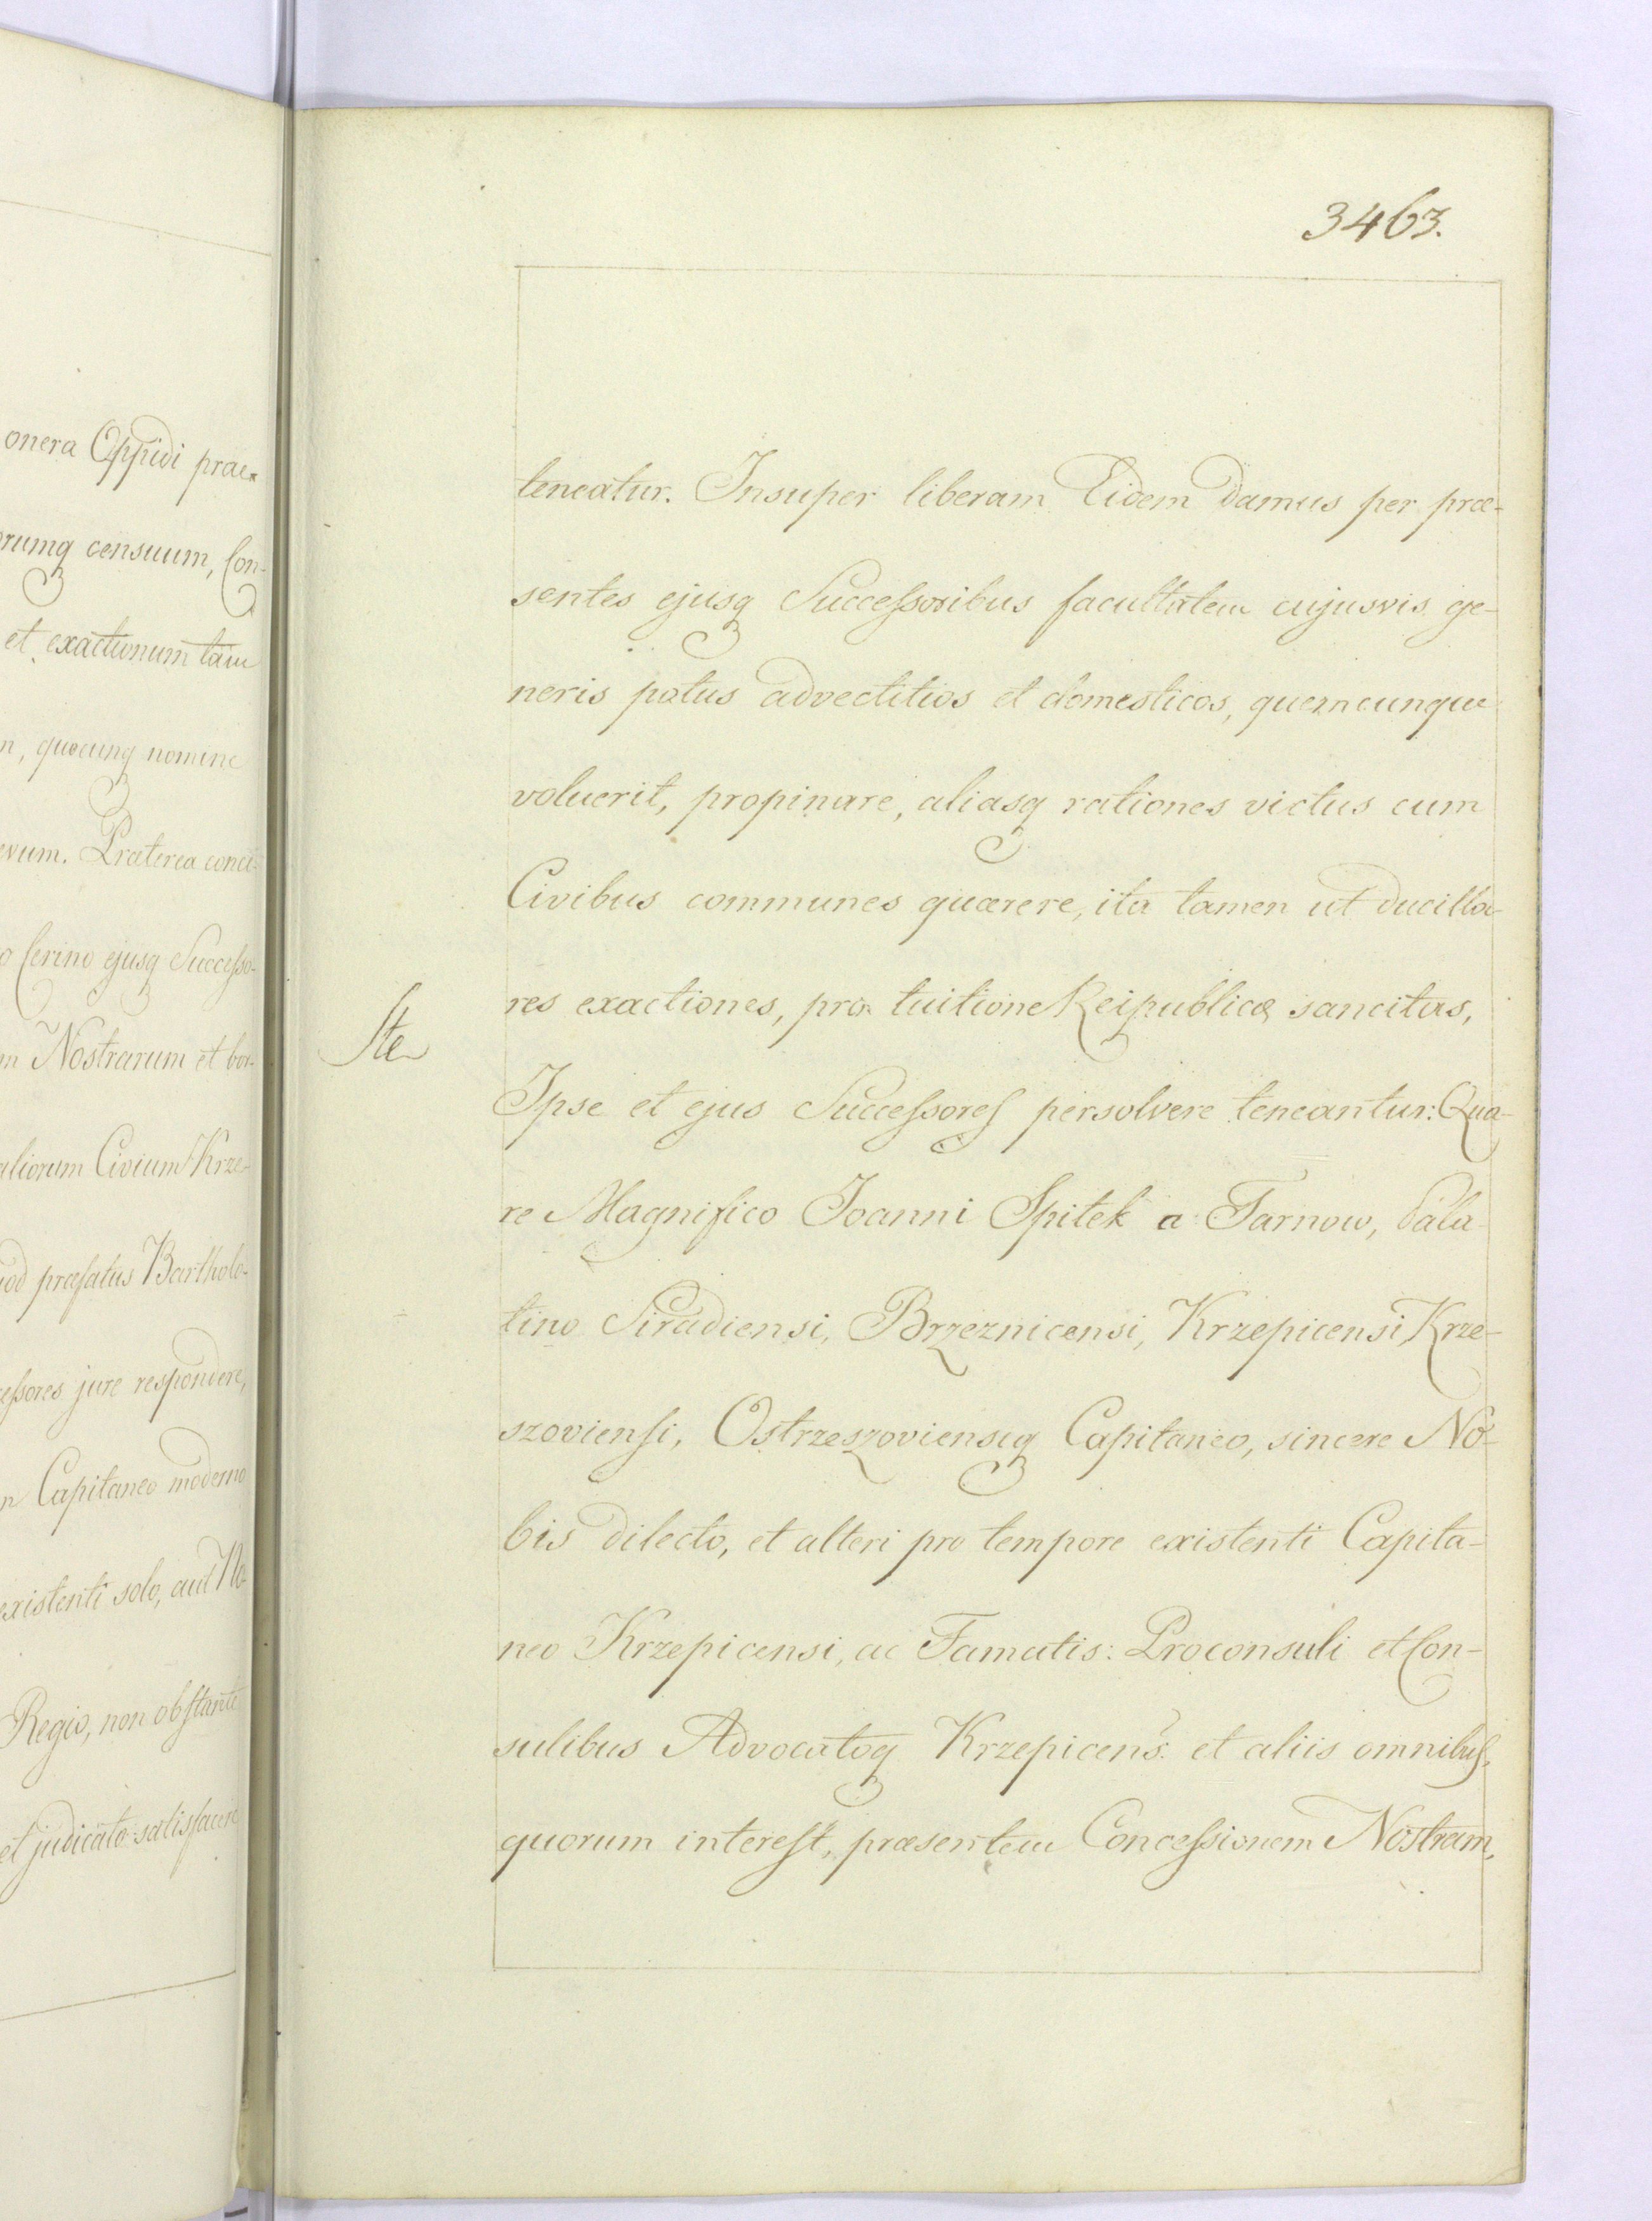 onera Oppidi prae-
rumq censuum, Con-
et exactionum tam
n, quocunq nomine
evum. Præterea conce-
o Cerino ejusq Successo-
m Nostrarum et bor-
aliorum Civium Krze-
uod præfatus Bartholo-
cessores jure respondere,
n Capitaneo moderno
existenti solo, aut No-
Regio, non obstante
et judicato satisfacere
3463.
teneatur. Insuper liberam Eidem damus per præ-
sentes ejusq Successoribus facultatem cujusvis ge-
neris potus advectitios et domesticos, quemcunque
voluerit, propinare, aliasq rationes victus cum
Civibus communes quærere, ita tamen ut ducilla-
res exactiones, pro tuitione Reipublicæ sancitas,
Ste
Ipse et ejus Successores persolvere teneantur: Qua-
re Magnifico Joanni Spitek a Tarnow, Pala-
tino Siradiensi, Brzeznicensi, Krzepicensi, Krze-
szoviensi, Ostrzeszoviensiq Capitaneo, sincere No-
bis dilecto, et alteri pro tempore existenti Capita-
neo Krzepicensi, ac Famatis: Proconsuli et Con-
sulibus Advocatoq Krzepicens: et aliis omnibus,
quorum interest, præsentem Concessionem Nostram,